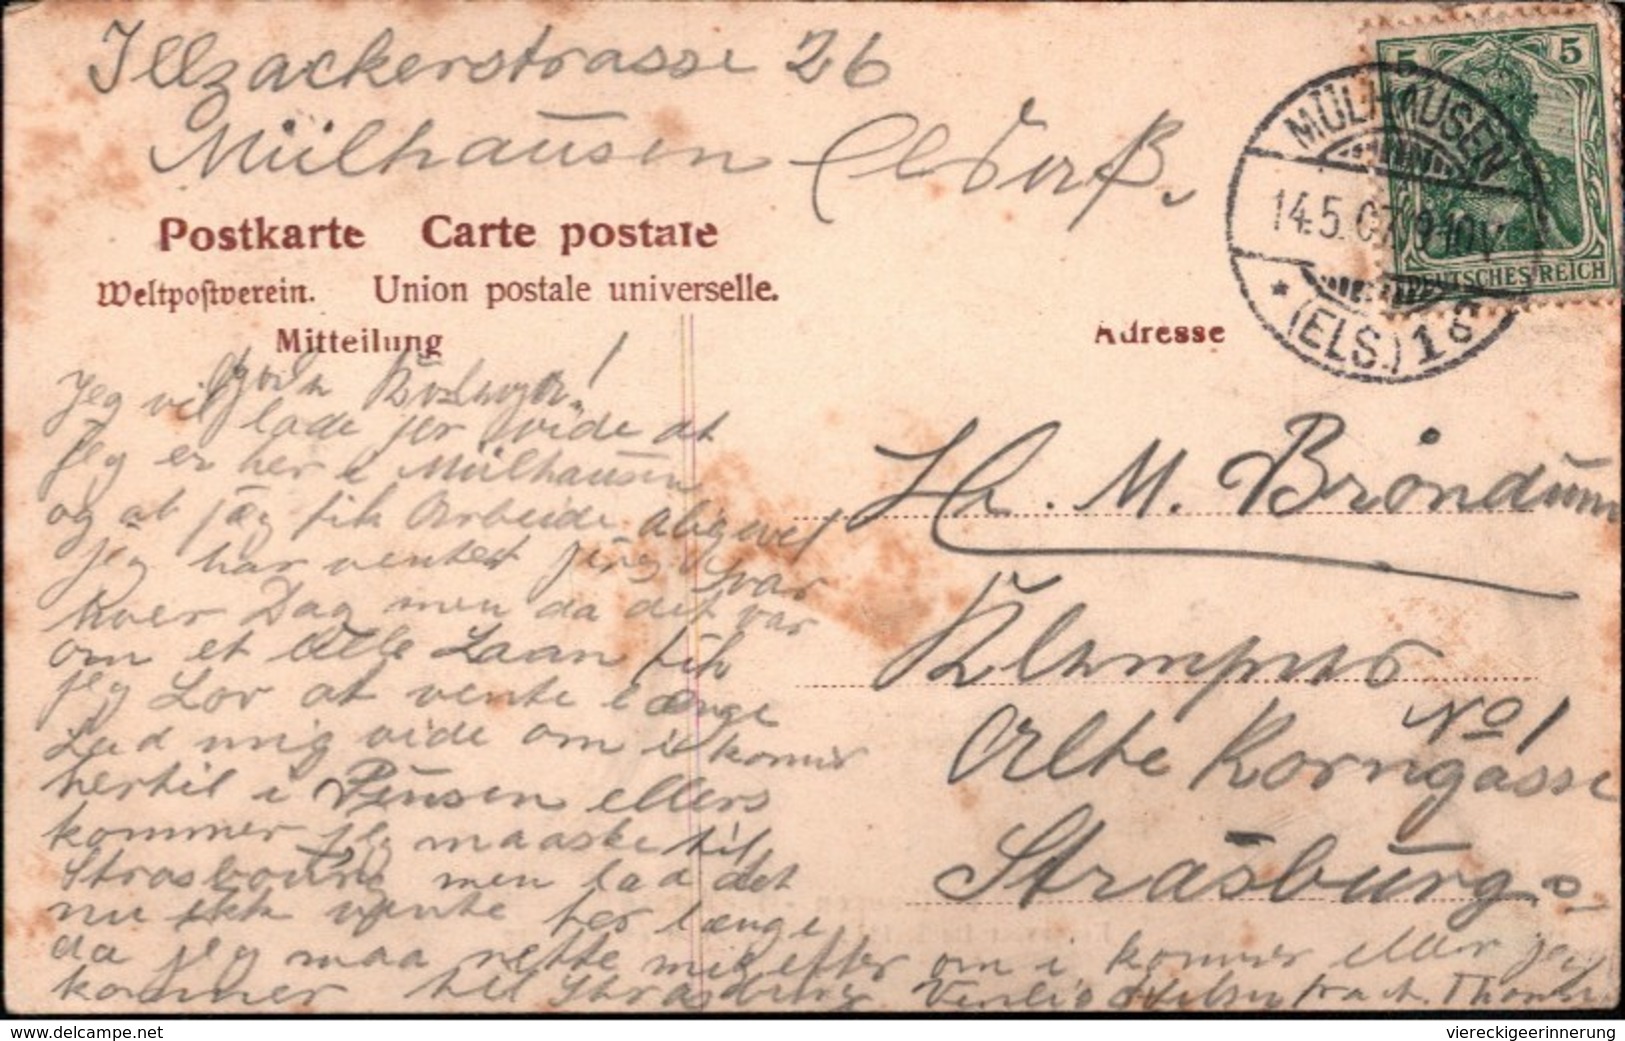 Illzackerstrasse 26
Mülhausen
Postkarte Carte postale
Weltpostverein. Union postale universelle.
Mitteilung
Adresse
5 5
DEUTSCHES REICH
MÜLHAUSEN
14.5.07. 9-10V
* (ELS.) 1
Jeg vil lade jer vide at
jeg er her i Mülhausen
og at jæg fik Arbeide aligevel
jeg har ventet jeng svar
hver Dag men da det var
om et Lille Laan fik
jeg Lov at vente længe
Lad mig vide om i kommer
hertil i Pinsen ellers
kommer jeg maaske til
Strasbourg men lad det
nu ikk vente her længe
da jeg maa rette mig efter om i kommer eller jeg
kommer til Strasburg. Venlig Hilsen fra A. Thomsen
Hr. M. Bröndum
Klempner
No 1
Alte Korngasse
Strasburg
www.delcampe.net
viereckigeerinnerung